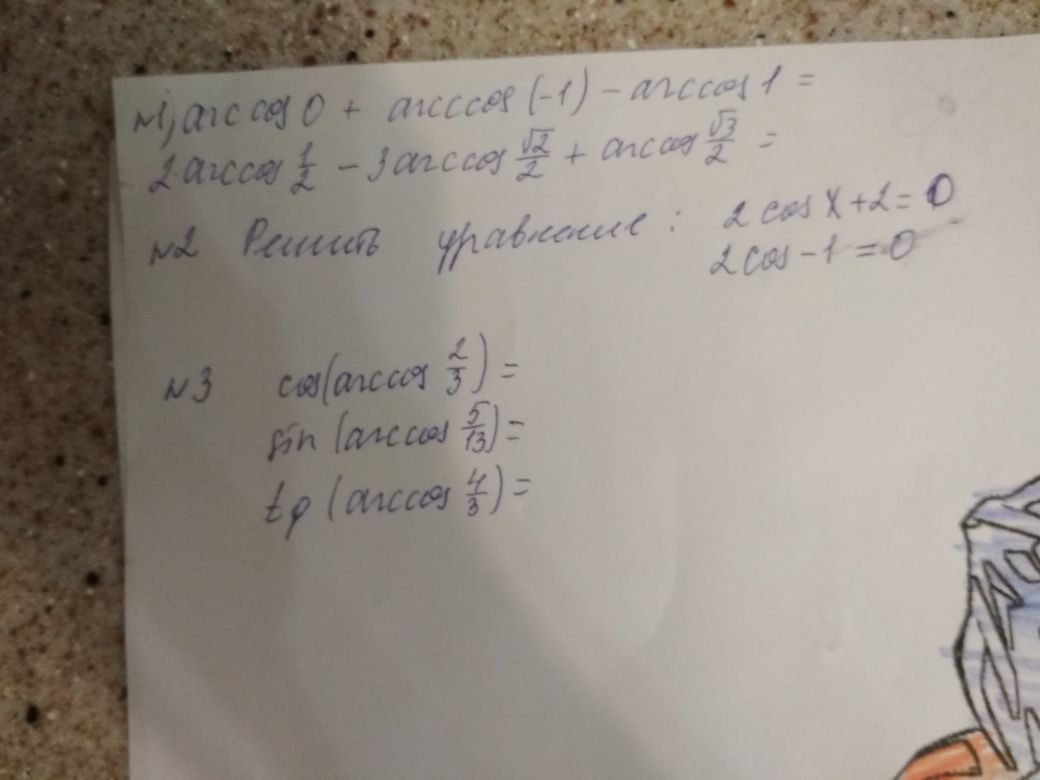 №1) arccos 0 + arcccos (-1) - arccos 1 =
2 arccos 1/2 - 3 arccos √2/2 + arcos √3/2 =
№2 Решить уравнение : 2 cos x + 2 = 0
2 cos - 1 = 0
№3 cos(arccos 2/3) =
sin (arccos 5/13) =
tg (arccos 4/3) =